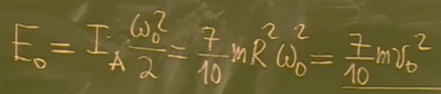 E₀ = I_A ω₀²/2 = 7/10 mR²ω₀² = 7/10 mv₀²